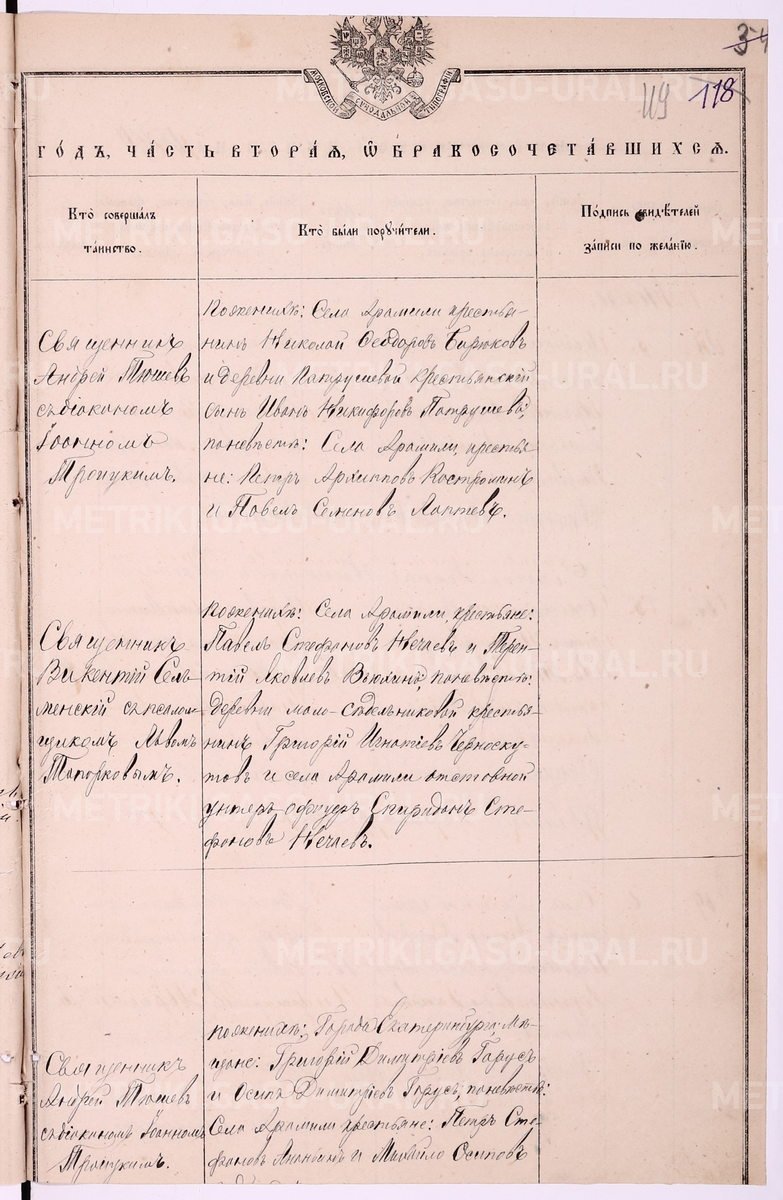 МОСКОВСКОЙ СѴНОДАЛЬНОЙ ТИПОГРАФІИ
34
119 118
ГО́ДЪ, ЧА́СТЬ ВТОРА́Я, Ѡ БРАКОСОЧЕТА́ВШИХСЯ.
Кто̀ соверша́лъ
та́инство.
Кто̀ бы́ли поручи́тели.
По́дпись свидѣ́телей
за́писи по жела́нію.
Священникъ
Андрей Тюшевъ
съ діакономъ
Іоанномъ
Троицкимъ.
По женихѣ: Села Арамили крестья-
нинъ Николай Ѳеодоровъ Бирюковъ
и деревни Патрушевой крестьянскій
сынъ Иванъ Никифоровъ Патрушевъ;
по невѣстѣ: Села Арамили крестья-
не: Петръ Архипповъ Костроминъ
и Павелъ Семеновъ Лаптевъ.
Священникъ
Викентій Сель-
менскій съ псалом-
щикомъ Львомъ
Топорковымъ.
По женихѣ: Села Арамили, крестьяне:
Павелъ Стефановъ Нечаевъ и Терен-
тій Яковлевъ Вьюхинъ, по невѣстѣ:
деревни мало-сѣдельниковой крестья-
нинъ Григорій Игнатіевъ Черноску-
товъ и села Арамили отставной
унтеръ-офицеръ Спиридонъ Сте-
фановъ Нечаевъ.
Священникъ
Андрей Тюшевъ
съ діакономъ Іоанномъ
Троицкимъ.
По женихѣ: Города Екатеринбурга мѣ-
щане: Григорій Димитріевъ Гарусъ
и Осипъ Димитріевъ Гарусъ, по невѣстѣ:
Села Арамили крестьяне: Петръ Сте-
фановъ Ананьинъ и Михайло Осиповъ
METRIKI.GASO-URAL.RU